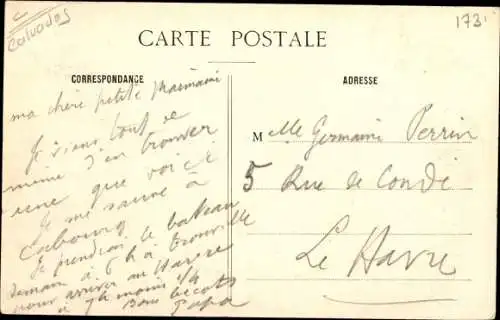 Calvados
173
CARTE POSTALE
CORRESPONDANCE
ma chère petite Maimaine
Je viens tout de
même d'en trouver
une que voici
Je me sauve à
Cabourg
Je prendrai le bateau
demain à 6 h à Trouville
pour arriver au Havre
à 7h moins 1/4
Bons bécots
Papa
ADRESSE
Mlle Germaine Perrin
5 Rue de Condé
Le Havre